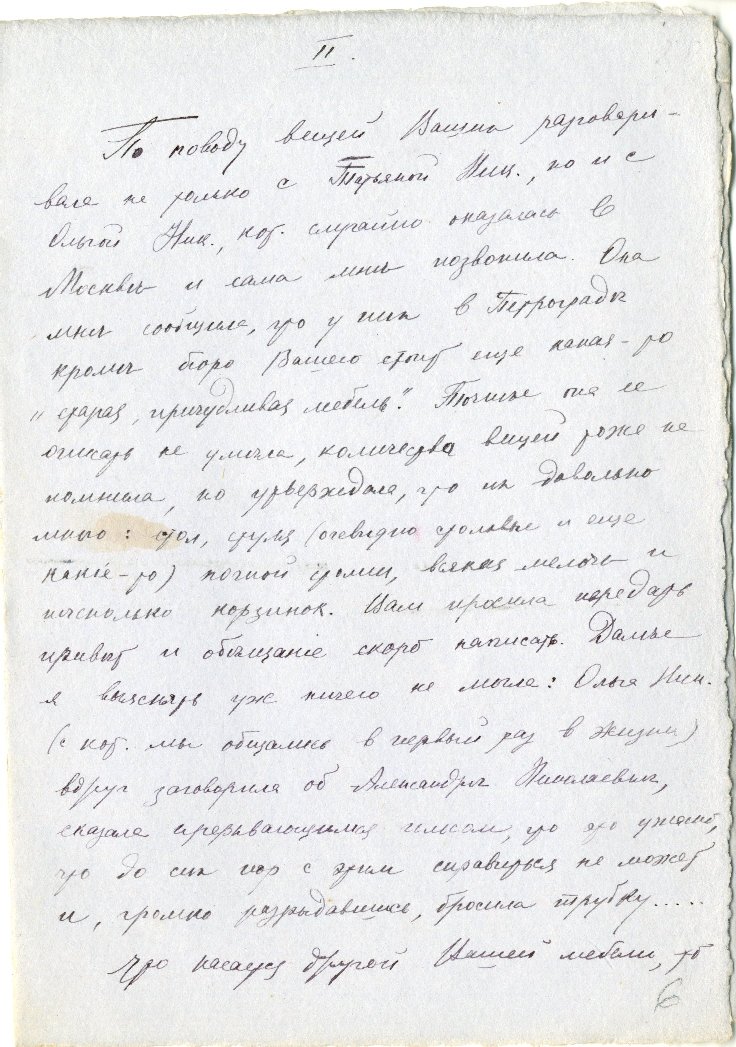 II.
По поводу вещей Ваших разговари-
вала не только с Татьяной Ник., но и с
Ольгой Ник., кот. случайно оказалась в
Москвѣ и сама мнѣ позвонила. Она
мнѣ сообщила, что у них в Петроградѣ
кромѣ бюро Вашего стоит еще какая-то
„старая, причудливая мебель". Точнѣе она ее
описать не умѣла, количества вещей тоже не
помнила, но утверждала, что их довольно
много: стол, стулья (очевидно столовые и еще
какіе-то) ночной столик, всякая мелочь и
нѣсколько корзинок. Вам просила передать
привѣт и обѣщаніе скоро написать. Дальше
я выяснить уж ничего не могла: Ольга Ник.
(с кот. мы общались в первый раз в жизни)
вдруг заговорила об Александрѣ Николаевичѣ,
сказала прерывающимся голосом, что это ужасно,
что до сих пор с этим справиться не может
и, громко разрыдавшись, бросила трубку.....
Что касается другой Вашей мебели, то
6